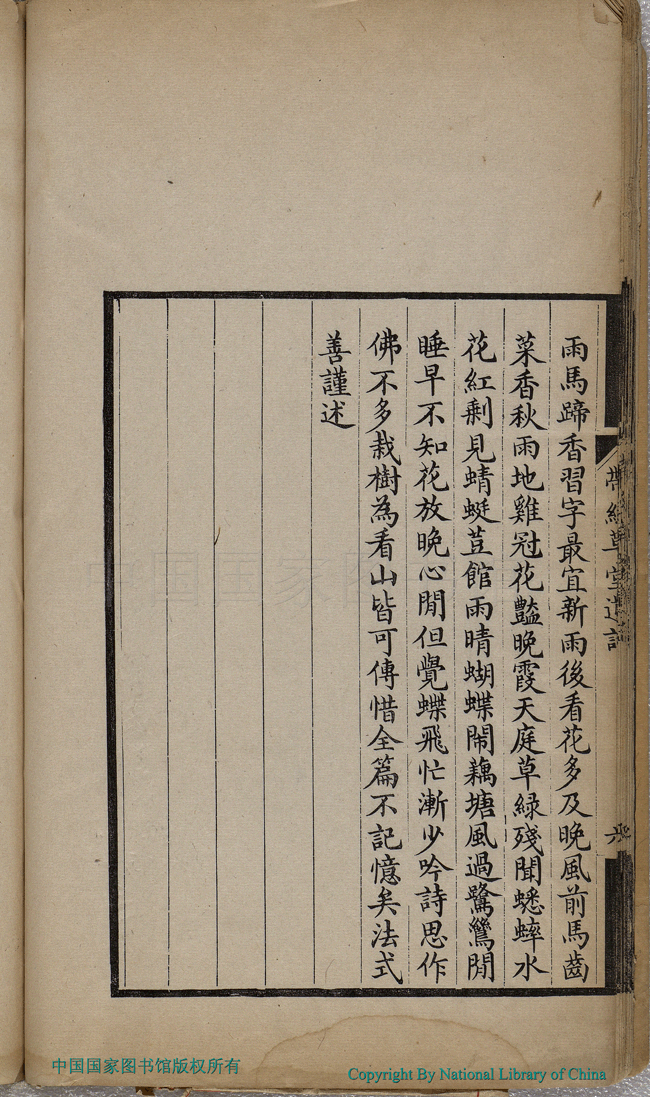 雨馬蹄香習字最宜新雨後看花多及晚風前馬齒
菜香秋雨地雞冠花豔晚霞天庭草綠殘聞蟋蟀水
花紅剩見蜻蜓荳館雨晴蝴蝶鬧藕塘風過鷺鷥閒
睡早不知花放晚心閒但覺蝶飛忙漸少吟詩思作
佛不多栽樹為看山皆可傳惜全篇不記憶矣法式
善謹述
草堂遺詩
中国国家图书馆版权所有
Copyright By National Library of China